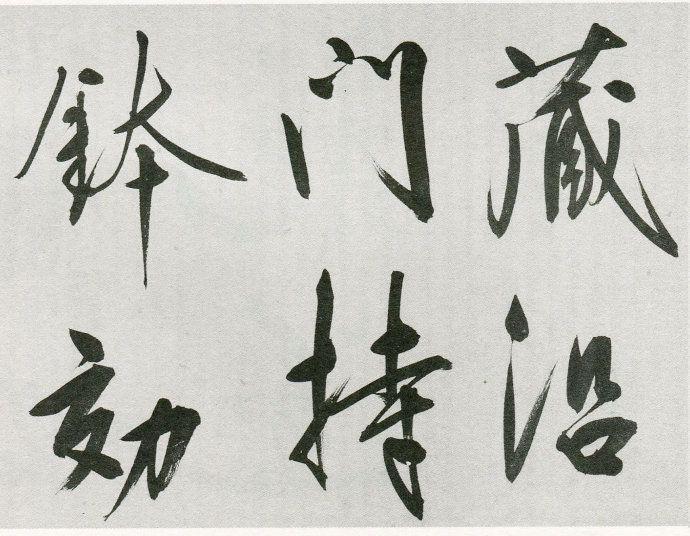 藏沿
门持
钵効